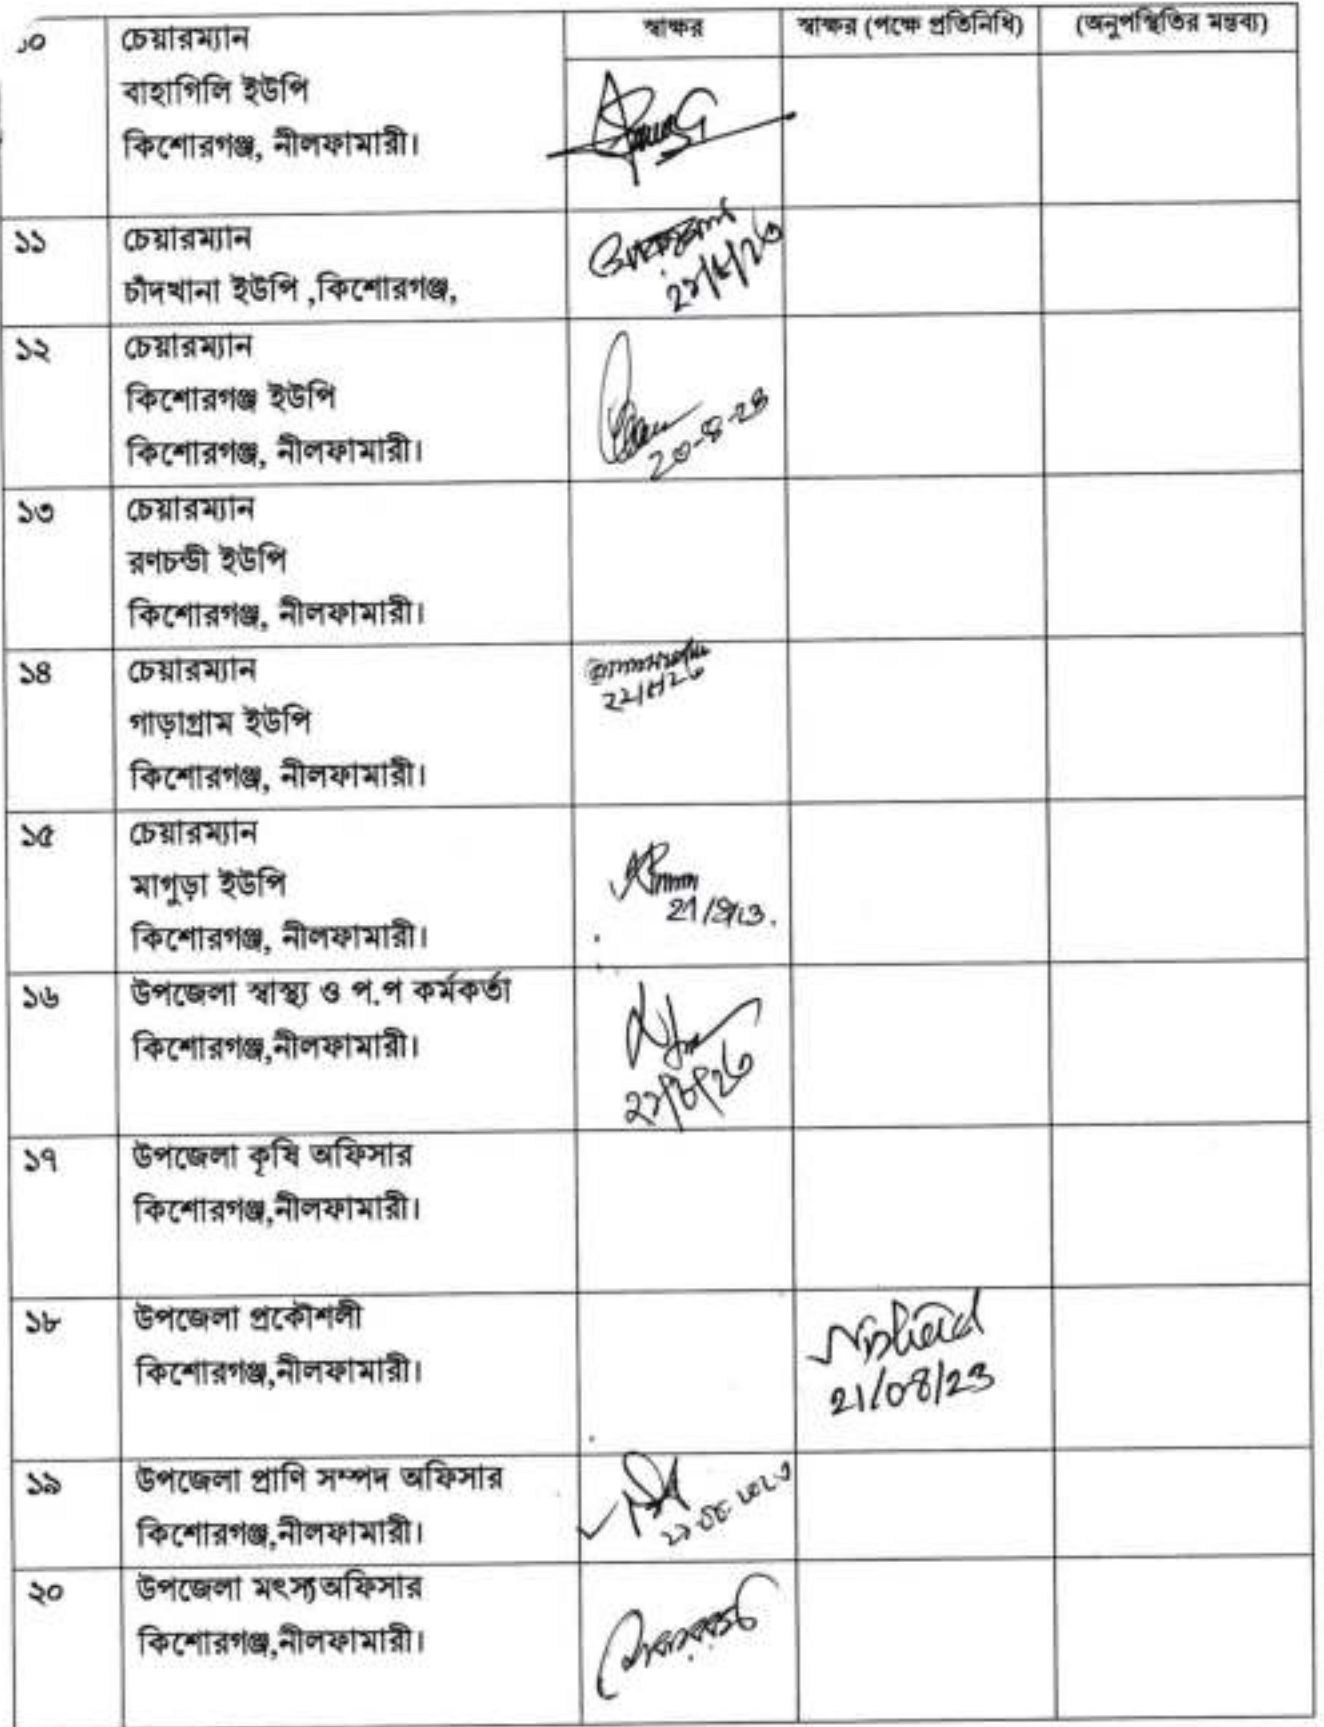 ১০ চেয়ারম্যান স্বাক্ষর স্বাক্ষর (পক্ষে প্রতিনিধি) (অনুপস্থিতির মন্তব্য)
বাহাগিলি ইউপি
কিশোরগঞ্জ, নীলফামারী।
১১ চেয়ারম্যান
চাঁদখানা ইউপি ,কিশোরগঞ্জ,
১২ চেয়ারম্যান
কিশোরগঞ্জ ইউপি
কিশোরগঞ্জ, নীলফামারী।
১৩ চেয়ারম্যান
রণচন্ডী ইউপি
কিশোরগঞ্জ, নীলফামারী।
১৪ চেয়ারম্যান
গাড়াগ্রাম ইউপি
কিশোরগঞ্জ, নীলফামারী।
১৫ চেয়ারম্যান
মাগুড়া ইউপি
কিশোরগঞ্জ, নীলফামারী।
১৬ উপজেলা স্বাস্থ্য ও প.প কর্মকর্তা
কিশোরগঞ্জ,নীলফামারী।
১৭ উপজেলা কৃষি অফিসার
কিশোরগঞ্জ,নীলফামারী।
১৮ উপজেলা প্রকৌশলী
কিশোরগঞ্জ,নীলফামারী।
21/08/23
১৯ উপজেলা প্রাণি সম্পদ অফিসার
কিশোরগঞ্জ,নীলফামারী।
২০ উপজেলা মৎস্যঅফিসার
কিশোরগঞ্জ,নীলফামারী।